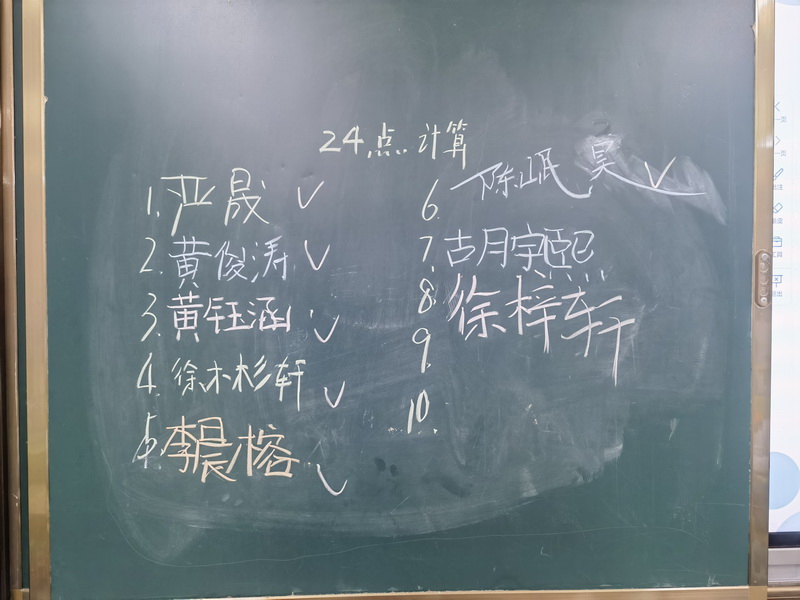 24点计算
1.严晟 ✓
2.黄俊涛 ✓
3.黄钰涵 ✓
4.徐木杉轩 ✓
5.李晨榕 ✓
6.陈岷昊 ✓
7.胡宇熙
8.徐梓轩
9.
10